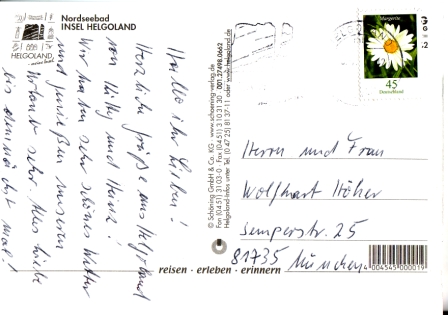 Nordseebad
INSEL HELGOLAND
HELGOLAND
Hallo ihr Lieben!
Herzliche Grüße aus Helgoland
von Kitty und Heinz!
Wir haben sehr schönes Wetter
und genießen unseren
Urlaub sehr. Alles Liebe
bis demnächst mal!
© Schöning GmbH & Co. KG · www.schoening-verlag.de
Fon (04 51) 3 10 3-0 Fax (04 51) 3 10 31 30 001 27498 0662
Helgoland-Infos unter: Tel. (0 47 25) 81 37-11 oder www.helgoland.de
Margerite
45
Deutschland
Herrn und Frau
Wolfhart Höher
Semperstr. 25
81735 München
reisen · erleben · erinnern
4 004545 000019